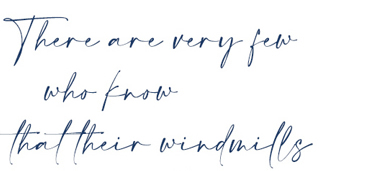 There are very few
who know
that their windmills